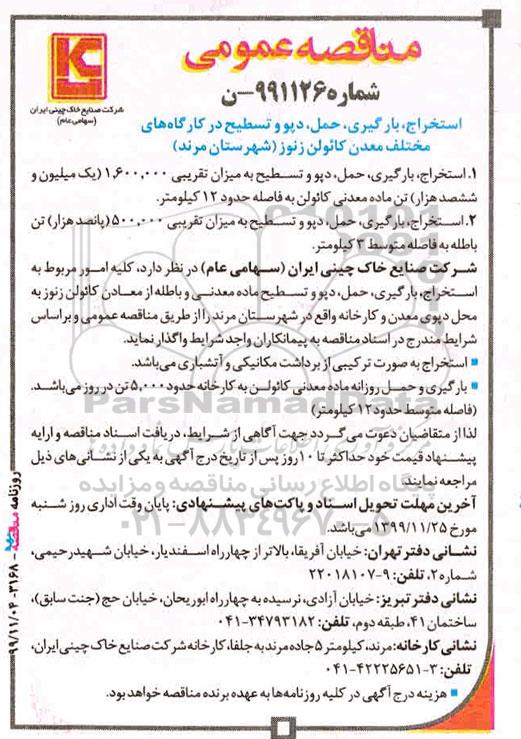 مناقصه عمومی
شماره ۹۹۱۱۲۶-ن
شرکت صنایع خاک چینی ایران
(سهامی عام)
استخراج، بارگیری، حمل، دپو و تسطیح در کارگاه‌های
مختلف معدن کائولن زنوز (شهرستان مرند)
۱. استخراج، بارگیری، حمل، دپو و تسطیح به میزان تقریبی ۱,۶۰۰,۰۰۰ (یک میلیون و
ششصد هزار) تن ماده معدنی کائولن به فاصله حدود ۱۲ کیلومتر.
۲. استخراج، بارگیری، حمل، دپو و تسطیح به میزان تقریبی ۵۰۰,۰۰۰ (پانصد هزار) تن
باطله به فاصله متوسط ۳ کیلومتر.
شرکت صنایع خاک چینی ایران (سهامی عام) در نظر دارد، کلیه امور مربوط به
استخراج، بارگیری، حمل، دپو و تسطیح ماده معدنی و باطله از معادن کائولن زنوز به
محل دپوی معدن و کارخانه واقع در شهرستان مرند را از طریق مناقصه عمومی و براساس
شرایط مندرج در اسناد مناقصه به پیمانکاران واجد شرایط واگذار نماید.
■ استخراج به صورت ترکیبی از برداشت مکانیکی و آتشباری می‌باشد.
■ بارگیری و حمل روزانه ماده معدنی کائولن به کارخانه حدود ۵,۰۰۰ تن در روز می‌باشد.
(فاصله متوسط حدود ۱۲ کیلومتر)
لذا از متقاضیان دعوت می‌گردد جهت آگاهی از شرایط، دریافت اسناد مناقصه و ارایه
پیشنهاد قیمت خود حداکثر تا ۱۰ روز پس از تاریخ درج آگهی به یکی از نشانی‌های ذیل
مراجعه نمایند.
آخرین مهلت تحویل اسناد و پاکت‌های پیشنهادی: پایان وقت اداری روز شنبه
مورخ ۱۳۹۹/۱۱/۲۵ می‌باشد.
نشانی دفتر تهران: خیابان آفریقا، بالاتر از چهارراه اسفندیار، خیابان شهید رحیمی،
شماره ۲، تلفن: ۹-۲۲۰۱۸۱۰۷
نشانی دفتر تبریز: خیابان آزادی، نرسیده به چهارراه ابوریحان، خیابان حج (جنت سابق)،
ساختمان ۴۱، طبقه دوم، تلفن: ۳۴۷۹۳۱۸۲-۰۴۱
نشانی کارخانه: مرند، کیلومتر ۵ جاده مرند به جلفا، کارخانه شرکت صنایع خاک چینی ایران،
تلفن: ۳-۴۲۲۲۵۶۵۱-۰۴۱
■ هزینه درج آگهی در کلیه روزنامه‌ها به عهده برنده مناقصه خواهد بود.
روزنامه مناقصه - ۳۱۶۸ - ۹۹/۱۱/۰۴
ParsNamadData
پایگاه اطلاع رسانی مناقصه و مزایده
۰۲۱-۸۸۳۴۹۶۷۰-۵